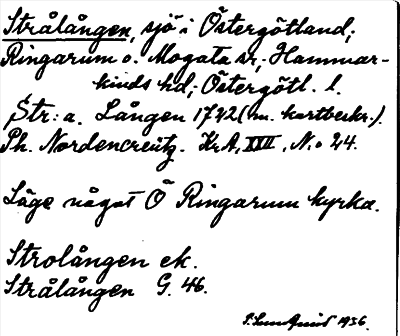 Strålången, sjö i Östergötland;
Ringarum o. Mogata sr; Hammar-
kinds hd; Östergötl. l.
Str:a. Lången 1722 (m. kartbeskr.).
Ph. Nordencreütz. KrA, XXII, N:o 24.
Läge något Ö Ringarum kyrka.
Strolången ek.
Strålången G. 46.
1936.